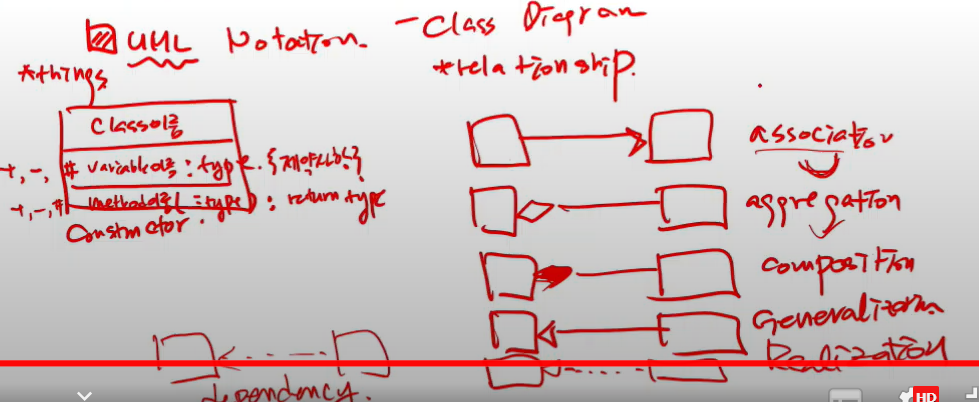 UML Notation.
- Class Diagram
*things
*relationship.
Class이름
+, -, # variable이름 : type. {제약사항}
+, -, # method이름( : type) : return type
Constructor.
association
aggregation
composition
Generalization
Realization
dependency.
HD